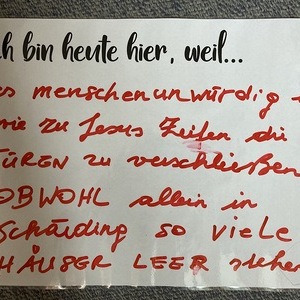 ch bin heute hier, weil...
es menschenunwürdig
wie zu Jesus Zeiten die
TÜREN zu verschließen
OBWOHL allein in
Schärding so viele
HÄUSER LEER stehen